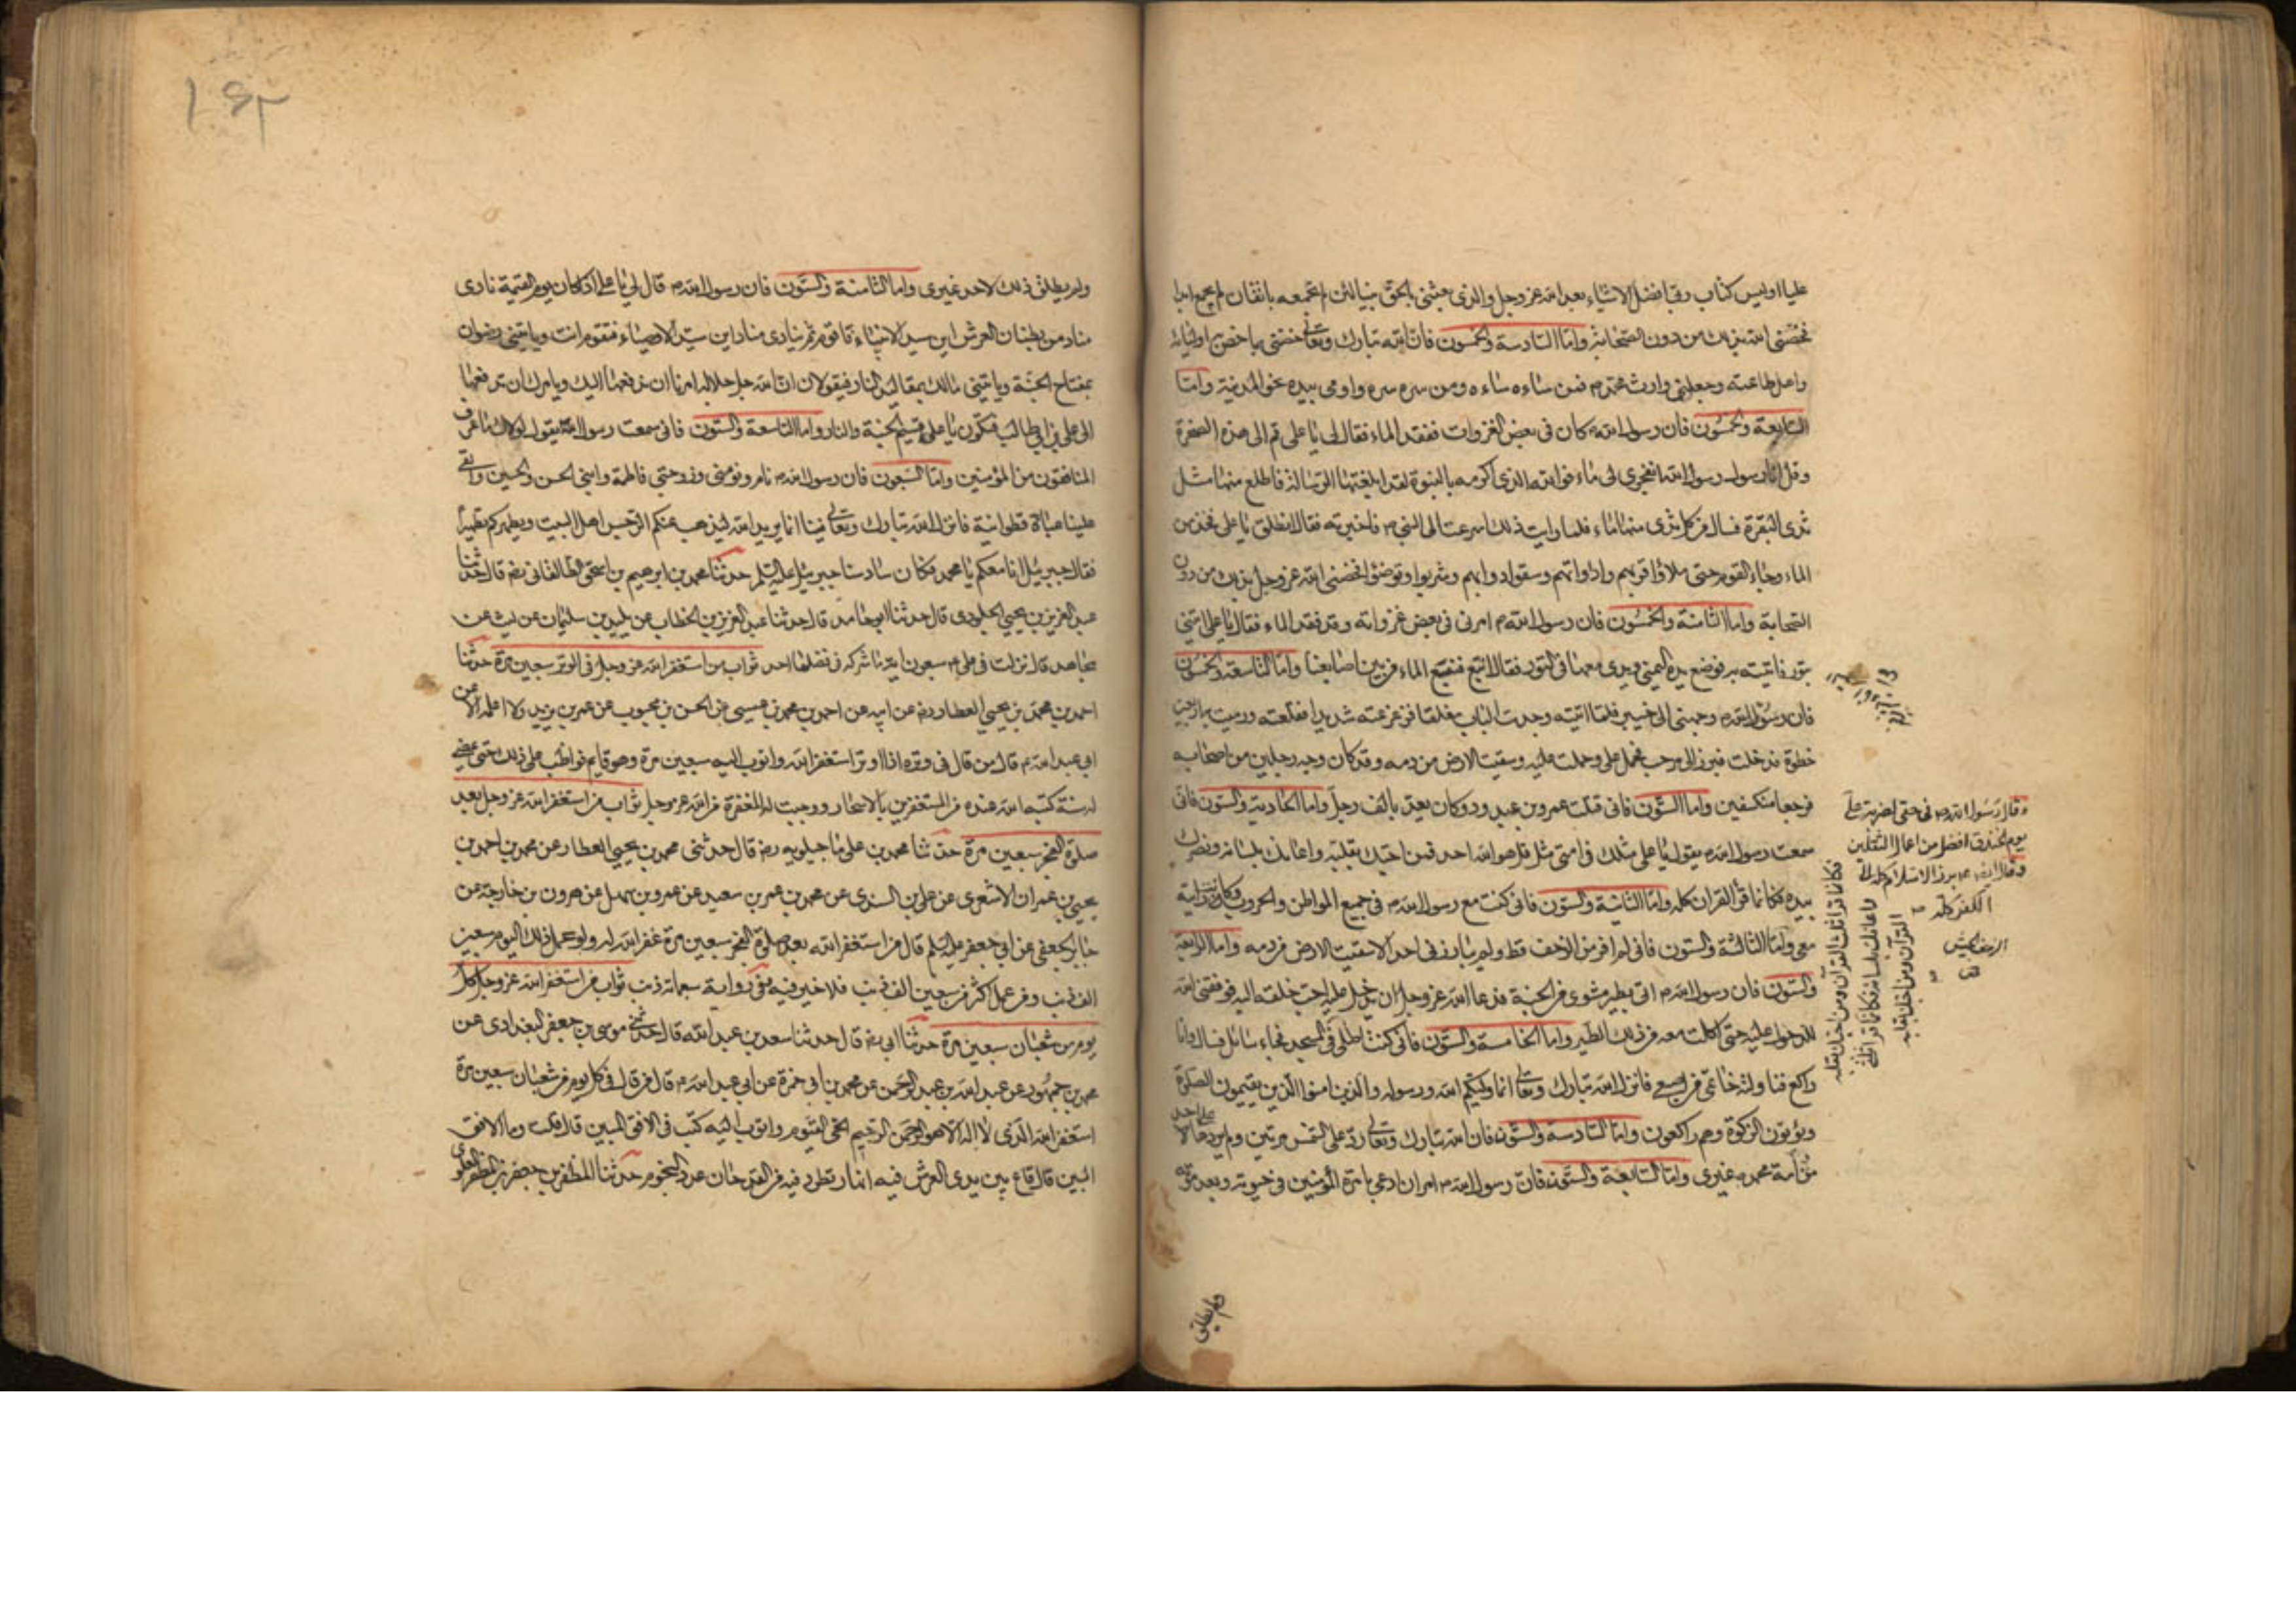 عليا اوليس كتاب ربي افضل الاشياء بعد الله عز وجل والذي بعثني بالحق نبيا لئن لم تجمعه باتقان لم يجمع ابدا
فخصني الله بذلك من دون الصحابة واما السادسة والخمسون فان الله تبارك وتعالى خصني بما خص به اولياءه
واهل طاعته وجعلني وارث محمد ص فمن ساءه ساءه ومن سره سره واومى بيده نحو المدينة واما
السابعة والخمسون فان رسول الله ص كان في بعض الغزوات ففقد الماء فقال لي يا علي قم الى هذه الصخرة
وقل انا رسول رسول الله انفجري لي ماء فوالله الذي اكرمه بالنبوة لقد ابلغتها الرسالة فاطلع منها مثل
ثدي البقرة فسال من كل ثدي منها ماء فلما رايت ذلك اسرعت الى النبي ص فاخبرته فقال انطلق يا علي فخذ من
الماء وجاء القوم حتى ملاؤا قربهم واداواتهم وسقوا دوابهم وشربوا وتوضئوا فخصني الله عز وجل بذلك من دون
الصحابة واما الثامنة والخمسون فان رسول الله ص امرني في بعض غزواته وقد فقد الماء فقال يا علي ائتني
بتور فاتيته به فوضع يده اليمنى ويدي معها في التور فقال انبع فنبع الماء من بين اصابعنا واما التاسعة والخمسون
فان رسول الله ص وجهني الى خيبر فلما اتيته وجدت الباب مغلقا فزعزعته شديدا فقلعته ورميت به اربعين
خطوة فدخلت فبرز الي مرحب فحمل علي وحملت عليه وسقيت الارض من دمه وقد كان وجه رجلين من اصحابه
فرجعا منكسفين واما الستون فاني قتلت عمرو بن عبد ود وكان يعد بالف رجل واما الحادية والستون فاني
سمعت رسول الله ص يقول يا علي مثلك في امتي مثل قل هو الله احد فمن احبك بقلبه واعانك بلسانه ونصرك
بيده فكانما قرأ القران كله واما الثانية والستون فاني كنت مع رسول الله ص في جميع المواطن والحروب وكانت رايته
معي واما الثالثة والستون فاني لم افر من الزحف قط ولم يبارزني احد الا سقيت الارض من دمه واما الرابعة
والستون فان رسول الله ص اتي بطير مشوي من الجنة فدعا الله عز وجل ان يدخل عليه احب خلقه اليه فوفقني الله
للدخول عليه حتى اكلت معه من ذلك الطير واما الخامسة والستون فاني كنت اصلي في المسجد فجاء سائل فسال وانا
راكع فناولته خاتمي من اصبعي فانزل الله تبارك وتعالى انما وليكم الله ورسوله والذين امنوا الذين يقيمون الصلوة
ويؤتون الزكوة وهم راكعون واما السادسة والستون فان الله تبارك وتعالى رد علي الشمس مرتين ولم يردها على احد
من امة محمد ص غيري واما السابعة والستون فان رسول الله ص امر ان ادعى بامرة المؤمنين في حيوته وبعد موته
ولم يطلق
وقال رسول الله ص في حقي لضربة علي
يوم الخندق افضل من اعمال الثقلين
وقال ايضا ص برز الاسلام كله الى
الكفر كله
فكانما قرا ثلث القران ومن احبك بقلبه
واعانك بلسانه فكانما قرا ثلثي
القران ومن احبك بقلبه
ولم يطلق ذلك لاحد غيري واما الثامنة والستون فان رسول الله ص قال لي يا علي اذا كان يوم القيمة نادى
مناد من بطنان العرش اين سيد الانبياء فاقوم ثم ينادي مناد اين سيد الاوصياء فتقوم انت وياتيني رضوان
بمفتاح الجنة وياتيني مالك بمقاليد النار فيقولان ان الله جل جلاله امرنا ان ندفعها اليك ويامرك ان تدفعها
الى علي بن ابي طالب فتكون يا علي قسيم الجنة والنار واما التاسعة والستون فاني سمعت رسول الله ص يقول لولاك ما عرف
المنافقون من المؤمنين واما السبعون فان رسول الله ص نام ونومني وزوجتي فاطمة وابني الحسن والحسين والقى
علينا عباءة قطوانية فانزل الله تبارك وتعالى فينا انما يريد الله ليذهب عنكم الرجس اهل البيت ويطهركم تطهيرا
فقال جبرئيل انا معكم يا محمد فكان سادسنا جبرئيل عليه السلم حدثنا محمد بن ابرهيم بن اسحق الطالقاني رضه قال حدثنا
عبد العزيز بن يحيى الجلودي قال حدثنا ابو حامد قال حدثنا عبد العزيز بن الخطاب عن تليد بن سليمان عن ليث عن
مجاهد قال نزلت في علي ع سبعون اية ما شركه في فضلها احد ثواب من استغفر الله عز وجل في الوتر سبعين مرة حدثنا
احمد بن محمد بن يحيى العطار رضه عن ابيه عن احمد بن محمد بن عيسى عن الحسن بن محبوب عن عمر بن يزيد ولا اعلمه الا عن
ابي عبد الله ع قال من قال في وتره اذا اوتر استغفر الله واتوب اليه سبعين مرة وهو قايم فواظب على ذلك حتى تمضي
له سنة كتبه الله عنده من المستغفرين بالاسحار ووجبت له المغفرة من الله عز وجل ثواب من استغفر الله عز وجل بعد
صلوة الفجر سبعين مرة حدثنا محمد بن علي ماجيلويه رضه قال حدثني محمد بن يحيى العطار عن محمد بن احمد بن
يحيى بن عمران الاشعري عن علي بن السندي عن محمد بن عمر بن سعيد عن عمرو بن سهل عن هرون بن خارجة عن
جابر الجعفي عن ابي جعفر عليه السلم قال من استغفر الله بعد صلوة الفجر سبعين مرة غفر الله له ولو عمل ذلك اليوم سبعين
الف ذنب ومن عمل اكثر من سبعين الف ذنب فلا خير فيه وفي رواية سبعمائة ذنب ثواب من استغفر الله عز وجل كل
يوم من شعبان سبعين مرة حدثنا ابي رضه قال حدثنا سعد بن عبد الله قال حدثني موسى بن جعفر البغدادي عن
محمد بن جمهور عن عبد الله بن عبد الرحمن عن محمد بن ابي حمزة عن ابي عبد الله ع قال من قال في كل يوم من شعبان سبعين مرة
استغفر الله الذي لا اله الا هو الرحمن الرحيم الحي القيوم واتوب اليه كتب في الافق المبين قال قلت وما الافق
المبين قال قاع بين يدي العرش فيه انهار تطرد فيه من القدحان عدد النجوم حدثنا المظفر بن جعفر بن المظفر العلوي